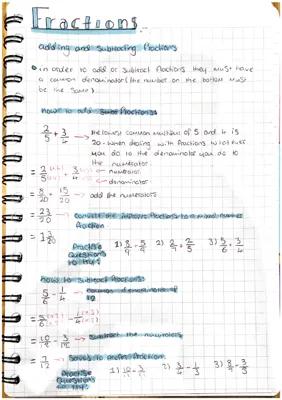 Fractions
adding and Subtracting fractions
in order to add or subtract fractions they must have
a common denominator (the number on the bottom must
be the same).
how to add fractions
2/5 + 3/4 → the lowest common multiple of 5 and 4 is
20 - when dealing with fractions whatever
you do to the denominator you do to
the numerator.
= 2/5 + 3/4 → numerator
→ denominator
= 8/20 + 15/20 → add the numerators
= 23/20 → convert the improper fraction to a mixed number
fraction
= 1 3/20
Practise
Questions
to try!
how to subtract fractions
5/6 - 1/4 → common denominator of
12
= 10/12 - 3/12 → Subtract the numerators
= 7/12
Practise
Questions
to try!